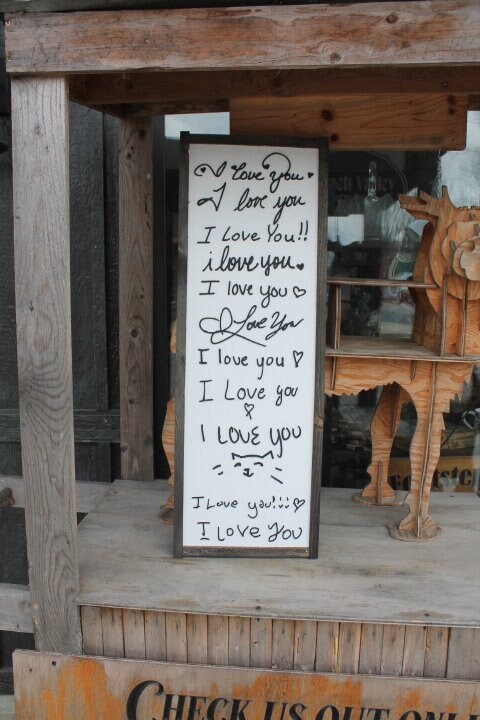 I love you
I love you
I Love You!!
i love you.
I love you
I Love You
I love you
I Love you
I LOVE you
I Love you!
I Love You
CHECK US OUT ONLI